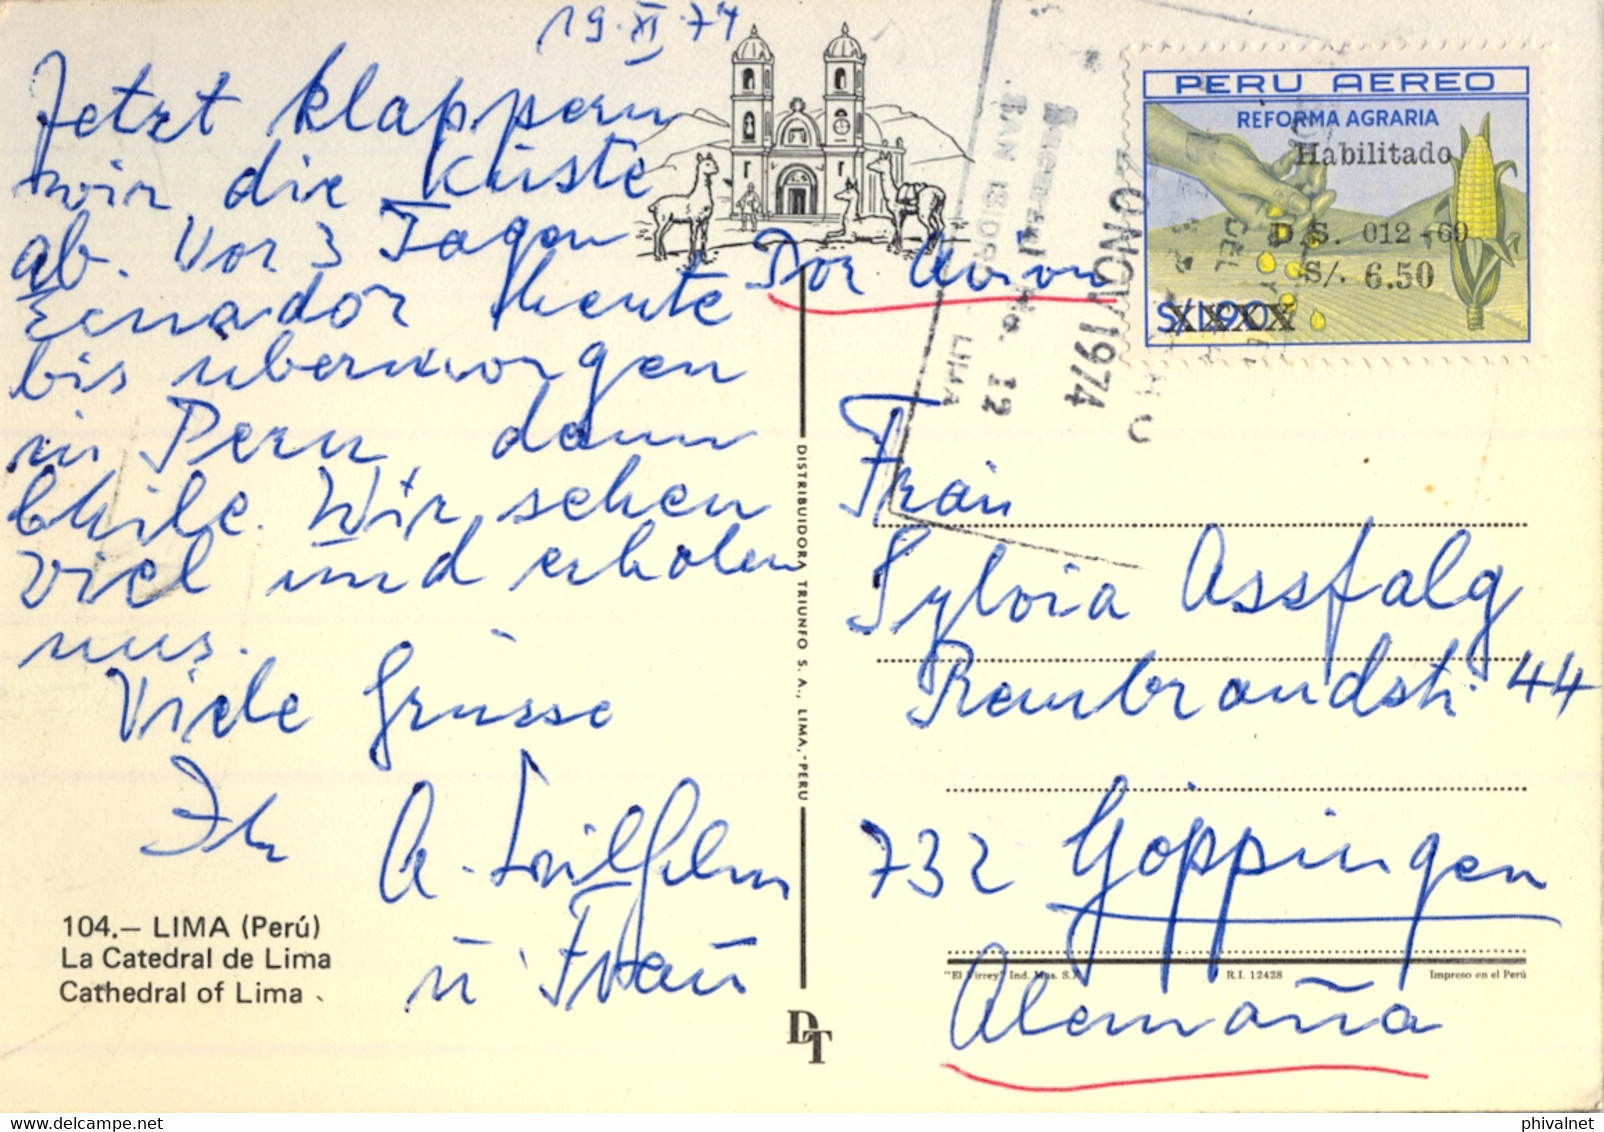 19.XI.74
Jetzt klappern
wir die Küste
ab. Vor 3 Tagen
Ecuador heute
bis übermorgen
in Peru dann
Chile. Wir sehen
viel und erholen
uns.
Viele Grüsse
Ihr
A. Wilhelm
u Frau
104.— LIMA (Perú)
La Catedral de Lima
Cathedral of Lima
DISTRIBUIDORA TRIUNFO S. A., LIMA, -PERU
DT
PERU AEREO
REFORMA AGRARIA
Habilitado
D. S. 012 -69
S/. 6.50
XXXXX
Sucursal No. 12
SAN ISIDRO - LIMA
NOV 1974
Por Avion
Frau
Sylvia Assfalg
Rembrandtstr. 44
732 Göppingen
"El Virrey" Ind. Mus. S.A. R.I. 12428 Impreso en el Perú
Alemaña
phivalnet